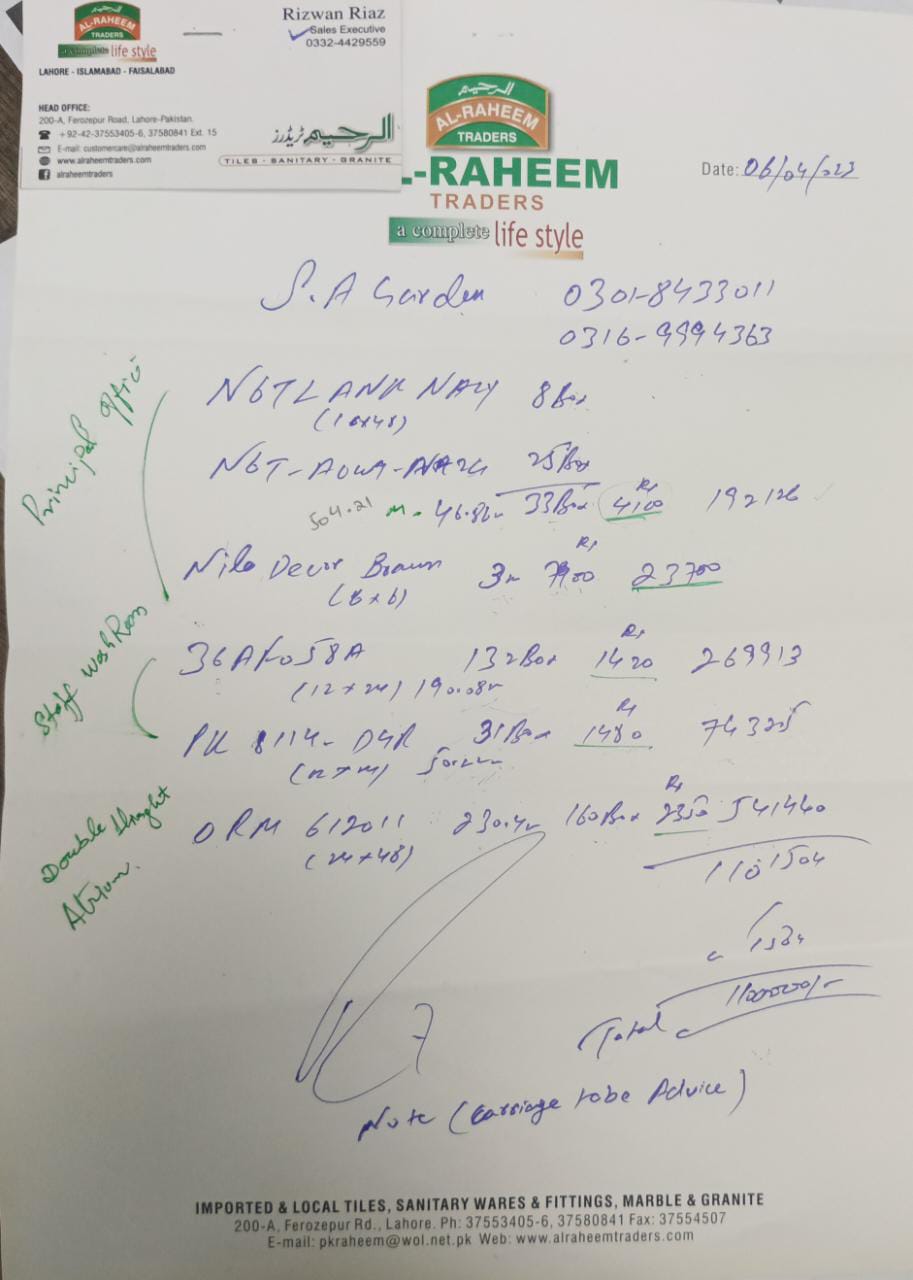 AL-RAHEEM
TRADERS
a complete life style
LAHORE - ISLAMABAD - FAISALABAD
Rizwan Riaz
Sales Executive
0332-4429559
HEAD OFFICE:
200-A, Ferozepur Road, Lahore-Pakistan.
+92-42-37553405-6, 37580841 Ext. 15
E-mail: customercare@alraheemtraders.com
www.alraheemtraders.com
alraheemtraders
الرحیم ٹریڈرز
TILES - SANITARY - GRANITE
الرحیم
AL-RAHEEM
TRADERS
L-RAHEEM
TRADERS
a complete life style
Date: 06/04/2023
S.A Garden 0301-8433011
0316-9994363
Principal Office
8 Box
25 Box
504.21 33 Box Rs 4100 192126
Nilo Decor Brown Rs 23700
(6x6)
Staff WashRoom
132 Box Rs 1420 269913
(12x24) 190.08
PK 8114- D4R 31 Box Rs 1480 74325
(12x24)
Double Hieght
Atrium.
ORM 612011 230.4 160 Box Rs 2350 541440
(24x48)
1101504
1504
Total 1100000/-
Note (Carriage to be Advice)
IMPORTED & LOCAL TILES, SANITARY WARES & FITTINGS, MARBLE & GRANITE
200-A, Ferozepur Rd., Lahore. Ph: 37553405-6, 37580841 Fax: 37554507
E-mail: pkraheem@wol.net.pk Web: www.alraheemtraders.com